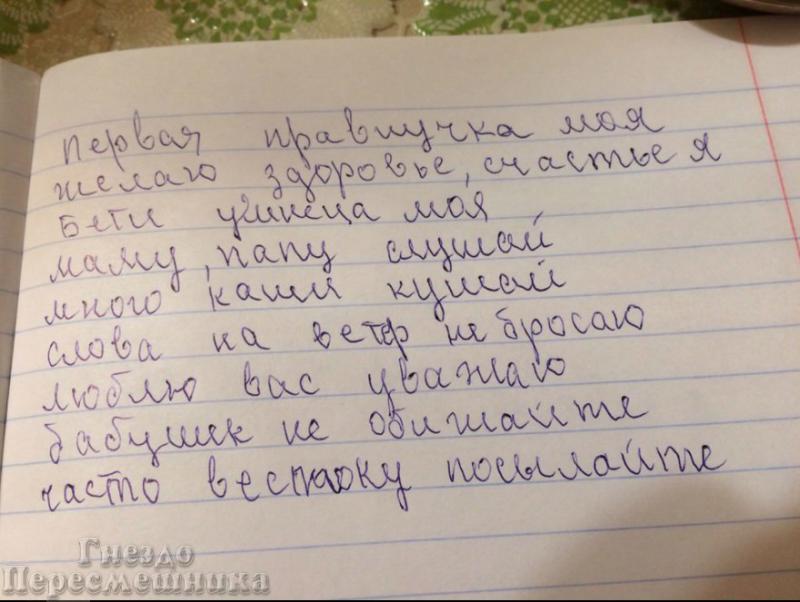 первая правнучка моя
желаю здоровье, счастье я
моя
маму, папу слушай
много каши кушай
слова на ветер не бросаю
люблю вас уважаю
бабушек не обижайте
часто весточку посылайте
Гнездо
Пересмешника